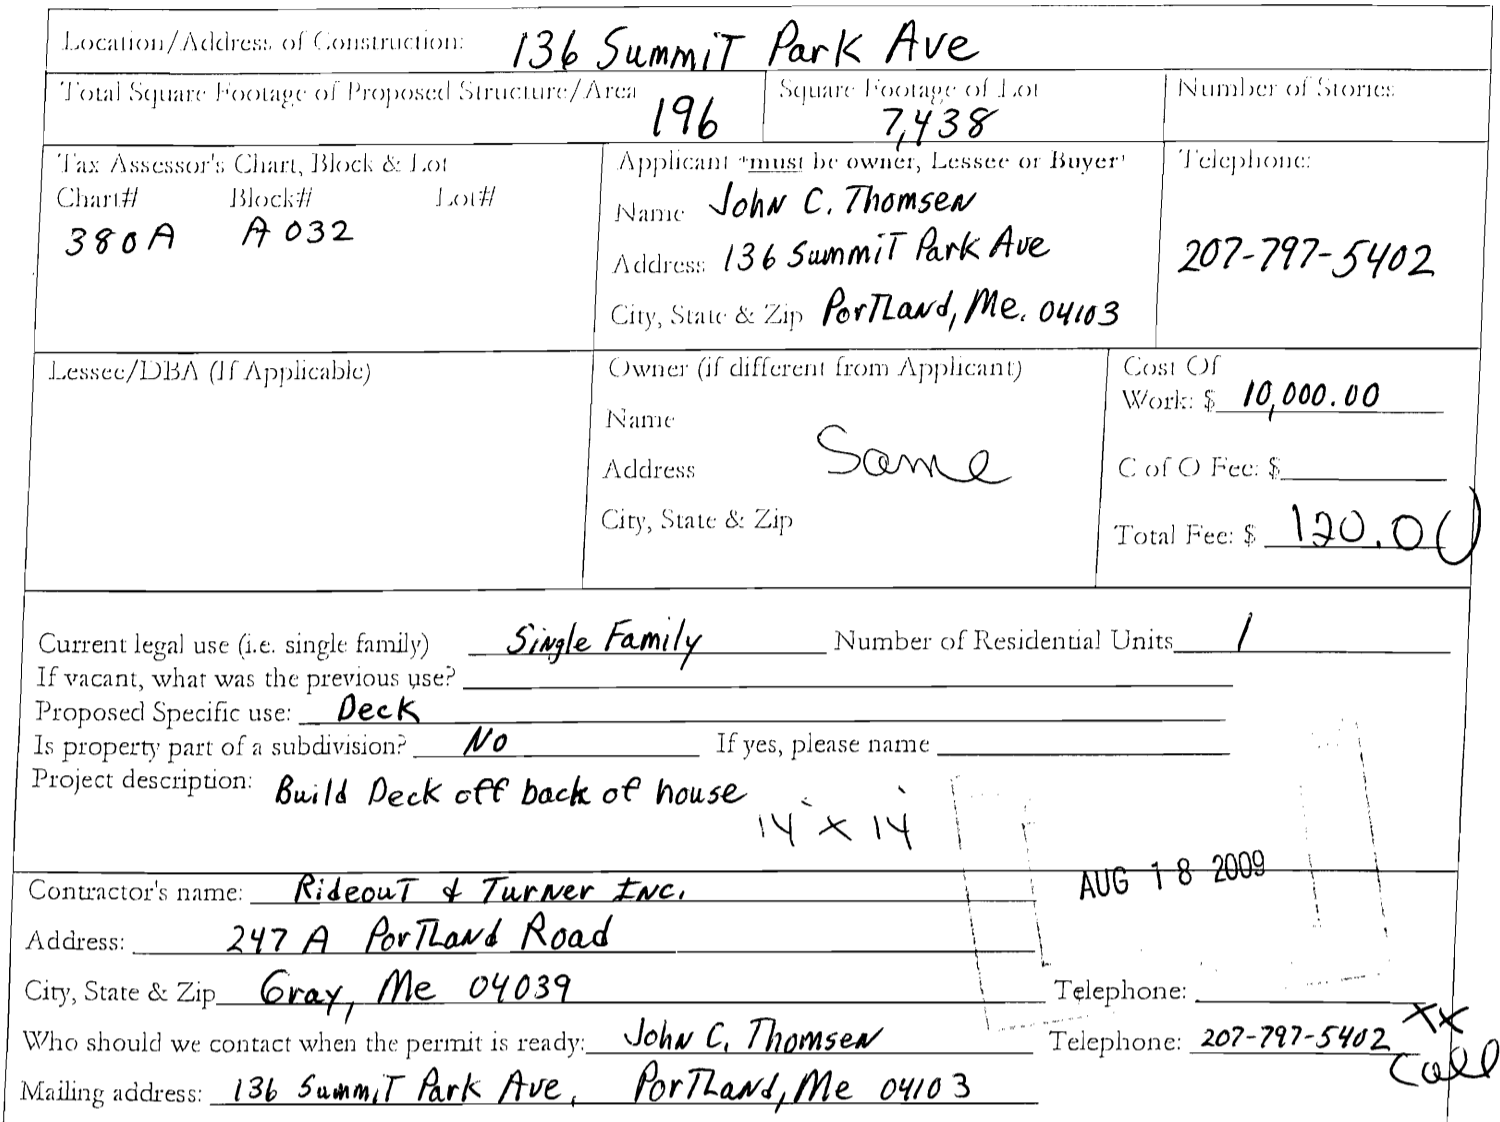 Location/Address of Construction: 136 Summit Park Ave
Total Square Footage of Proposed Structure/Area 196
Square Footage of Lot 7,438
Number of Stories
Tax Assessor's Chart, Block & Lot
Chart# Block# Lot#
380A A032
Applicant *must be owner, Lessee or Buyer*
Name John C. Thomsen
Address 136 Summit Park Ave
City, State & Zip Portland, Me. 04103
Telephone:
207-797-5402
Lessee/DBA (If Applicable)
Owner (if different from Applicant)
Name
Address Same
City, State & Zip
Cost Of
Work: $ 10,000.00
C of O Fee: $
Total Fee: $ 120.00
Current legal use (i.e. single family) Single Family Number of Residential Units 1
If vacant, what was the previous use?
Proposed Specific use: Deck
Is property part of a subdivision? No If yes, please name
Project description: Build Deck off back of house
14' x 14'
AUG 18 2009
Contractor's name: Rideout & Turner Inc.
Address: 247 A Portland Road
City, State & Zip Gray, Me 04039 Telephone:
Who should we contact when the permit is ready: John C. Thomsen Telephone: 207-797-5402 xx
Call
Mailing address: 136 Summit Park Ave, Portland, Me 04103